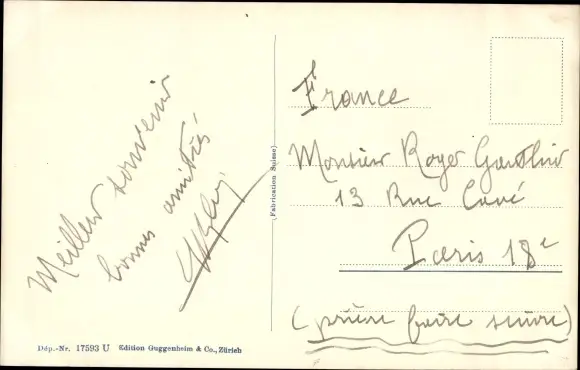 Meilleur souvenir
bonnes amitiés
Dép.-Nr. 17593 U Edition Guggenheim & Co., Zürich
(Fabrication Suisse)
France
Monsieur Roger Gauthier
13 Rue Cavé
Paris 18e
(prière faire suivre)